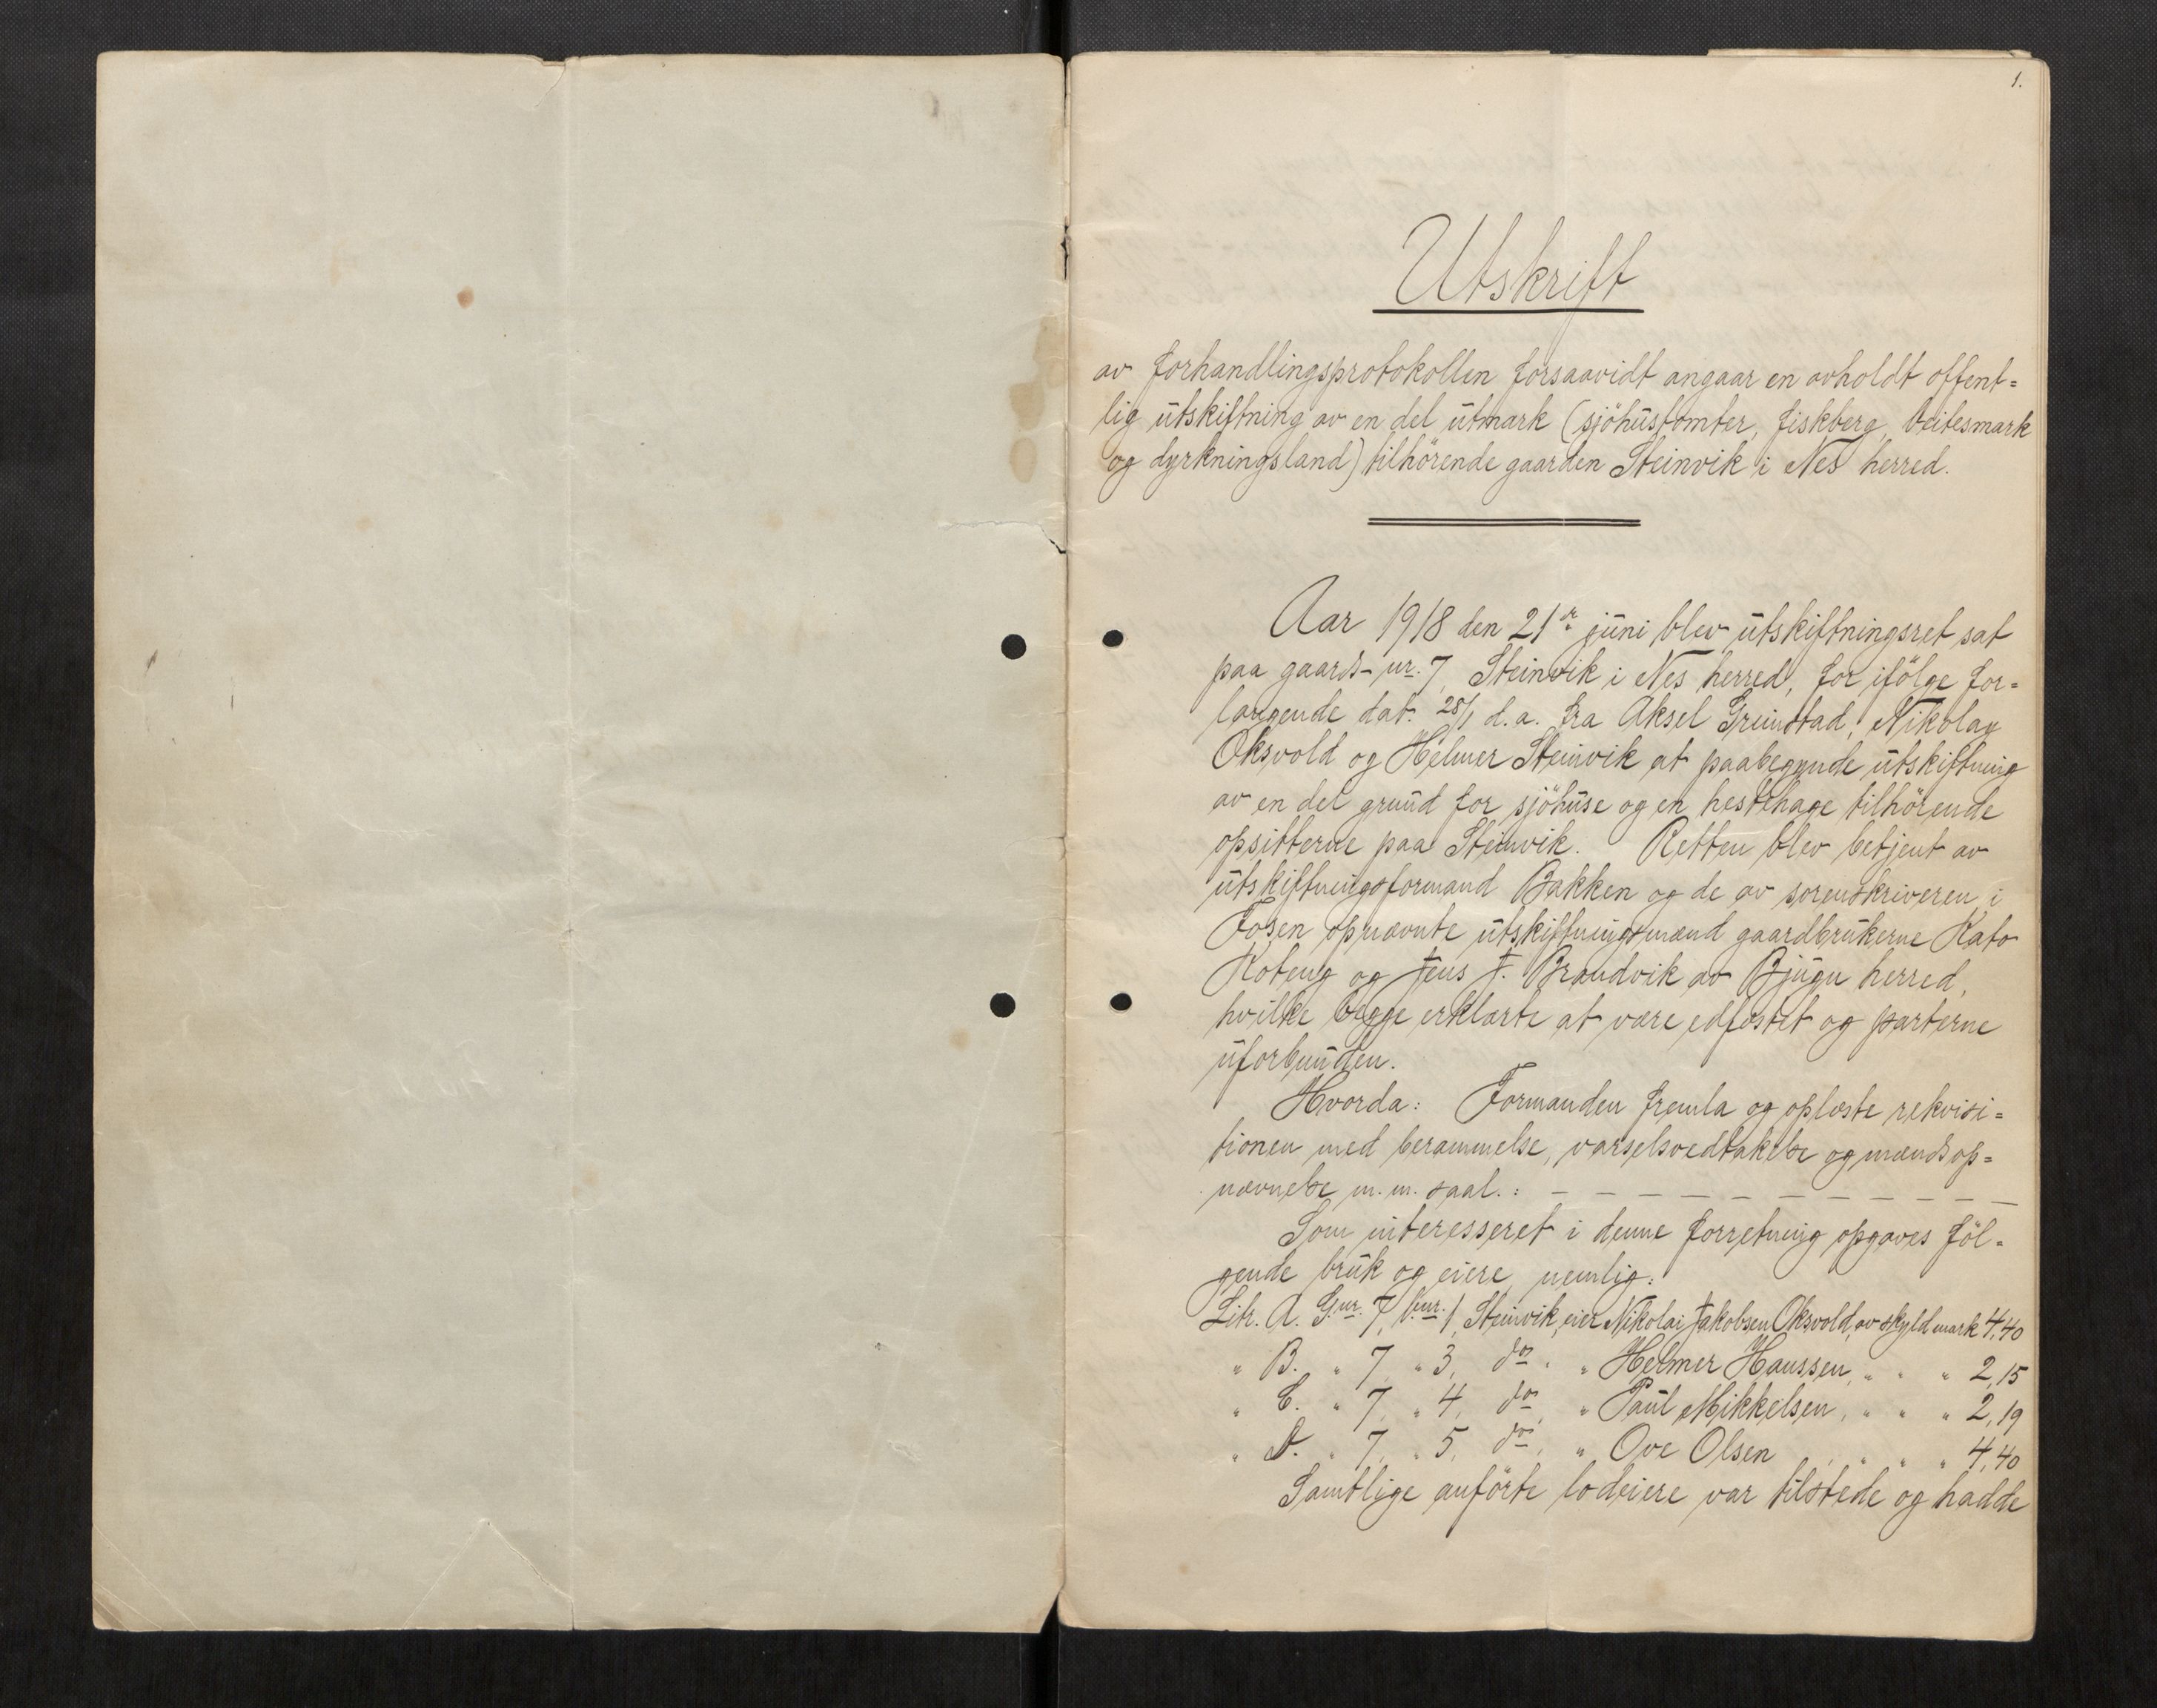 1.
Utskrift
av forhandlingsprotokollen forsaavidt angaar en avholdt offent=
lig utskiftning av en del utmark (sjöhustomter, fiskberg, beitesmark
og dyrkningsland) tilhörende gaarden Steinvik i Nes herred.
Aar 1918 den 21de juni blev utskiftningsret sat
paa gaards-nr. 7, Steinvik i Nes herred, for ifölge for=
langende dat. 28/1 d.a. fra Aksel Grinstad, Nikolay
Oksvold og Helmer Steinvik at paabegynde utskiftning
av en del grund for sjöhuse og en hestehage tilhörende
opsitterne paa Steinvik. Retten blev betjent av
utskiftningsformand Bakken og de av sorenskriveren i
Fosen opnævnte utskiftningsmænd gaardbrukerne Kato
Koteng og Jens J. Brandvik av Bjugn herred,
hvilke begge erklærte at være edfæstet og parterne
uforbunden.
Hvorda: Formanden fremla og oplæste rekvisi=
tionen med berammelse, varselsvedtakelse og mændsop=
nævnelse m.m. saal.: — — — — — — — — — — —
Som interesseret i denne forretning opgaves föl=
gende bruk og eiere nemlig:
Litr. A. Gnr. 7, bnr. 1, Steinvik, eier Nikolai Jakobsen Oksvold, av skyld mark 4,40
" B. " 7, " 3, do, " Helmer Hanssen, " " " 2,15
" C. " 7, " 4, do, " Paul Mikkelsen, " " " 2,19
" D. " 7, " 5, do, " Ove Olsen, " " " 4,40
Samtlige anförte lodeiere var tilstede og hadde